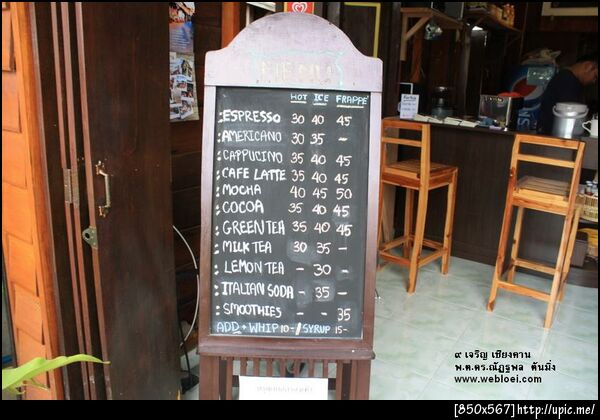 MENU
HOT ICE FRAPPE'
:ESPRESSO 30 40 45
:AMERICANO 30 35 -
:CAPPUCINO 35 40 45
:CAFE LATTE 35 40 45
:MOCHA 40 45 50
:COCOA 35 40 45
:GREEN TEA 35 40 45
:MILK TEA 30 35 -
:LEMON TEA - 30 -
:ITALIAN SODA - 35 -
:SMOOTHIES - - 35
ADD + WHIP 10-/SYRUP 15-
๙ เจริญ เชียงคาน
พ.ต.ดร.ณัฏฐพล ตันมิ่ง
www.webloei.com
[850x567]http://upic.me/